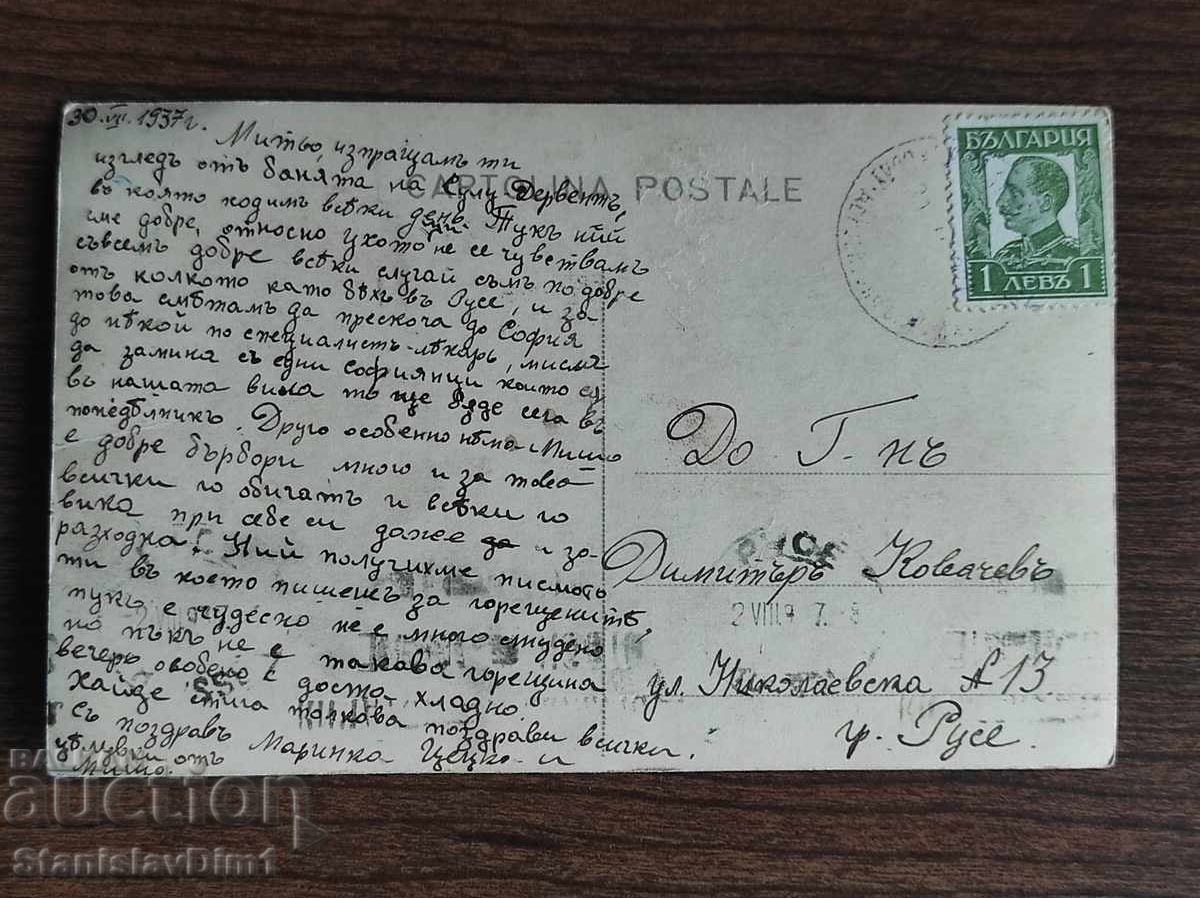 30.VII.1937 г.
Митьо, изпращамъ ти
изгледъ отъ банята на Сулу Дервентъ,
въ която ходимъ всѣки день. Тукъ ний
сме добре, относно ухото не се чувствамъ
съвсемъ добре всѣки случай съмъ по добре
отъ колкото като бѣхъ въ Русе, и за
това смѣтамъ да прескоча до София
до нѣкой по специалистъ-лѣкарь, мисля
да замина съ едни софиянци които са
въ нашата вила то ще бѫде сега въ
понедѣлникъ. Друго особенно нѣма. Мишо
е добре бърбори много и за това
всички го обичатъ и всѣки го
вика при себе си даже и за
разходка. Ний получихме писмото
ти въ което пишешъ за горещенитѣ,
тукъ е чудесно не е много студено
но пъкъ не е такава горещина
вечерь особено е доста хладно.
Хайде стига толкова поздрави всички.
Съ поздравъ Маринка Цецко и
цѣлувки отъ
Мишо.
CARTOLINA POSTALE
БЪЛГАРИЯ
1 ЛЕВЪ 1
До Г-нъ
РУСЕ
Димитъръ Ковачевъ
2 VIII 37 7 - 8
ул. Николаевска № 13
гр. Русе.
auction
StanislavDim1